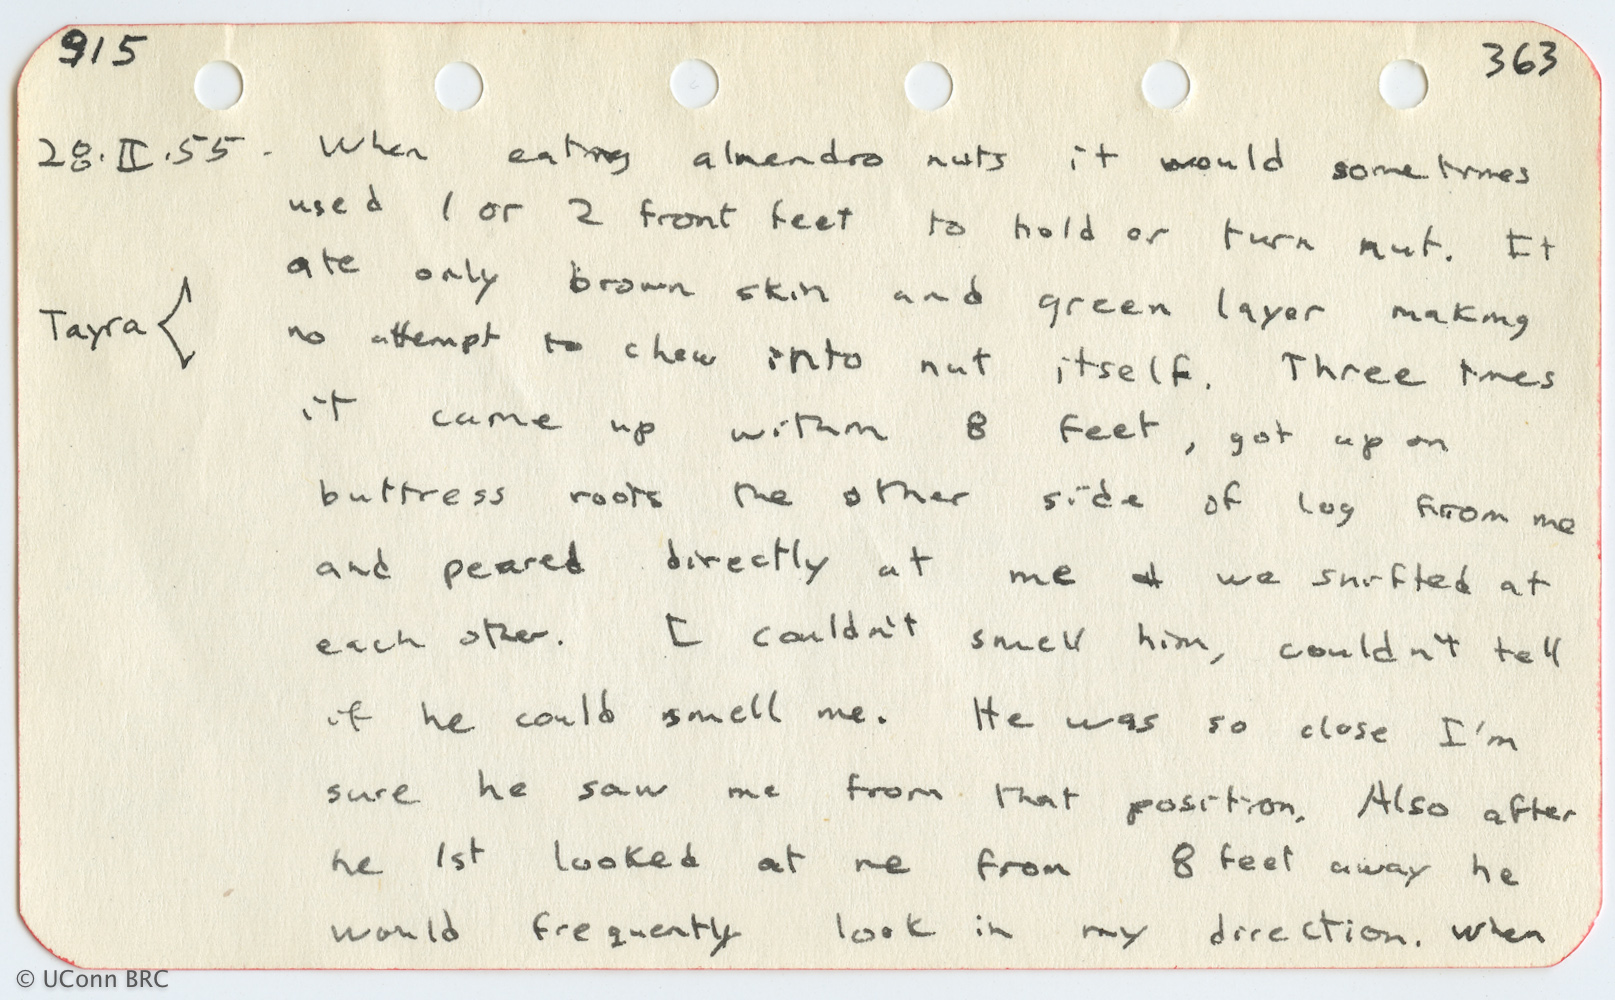 915 363
28.II.55. When eating almendro nuts it would sometimes
used 1 or 2 front feet to hold or turn nut. It
ate only brown skin and green layer making
Tayra no attempt to chew into nut itself. Three times
it came up within 8 feet, got up on
buttress roots the other side of log from me
and peared directly at me & we sniffed at
each other. I couldn't smell him, couldn't tell
if he could smell me. He was so close I'm
sure he saw me from that position. Also after
he 1st looked at me from 8 feet away he
would frequently look in my direction. When
© UConn BRC